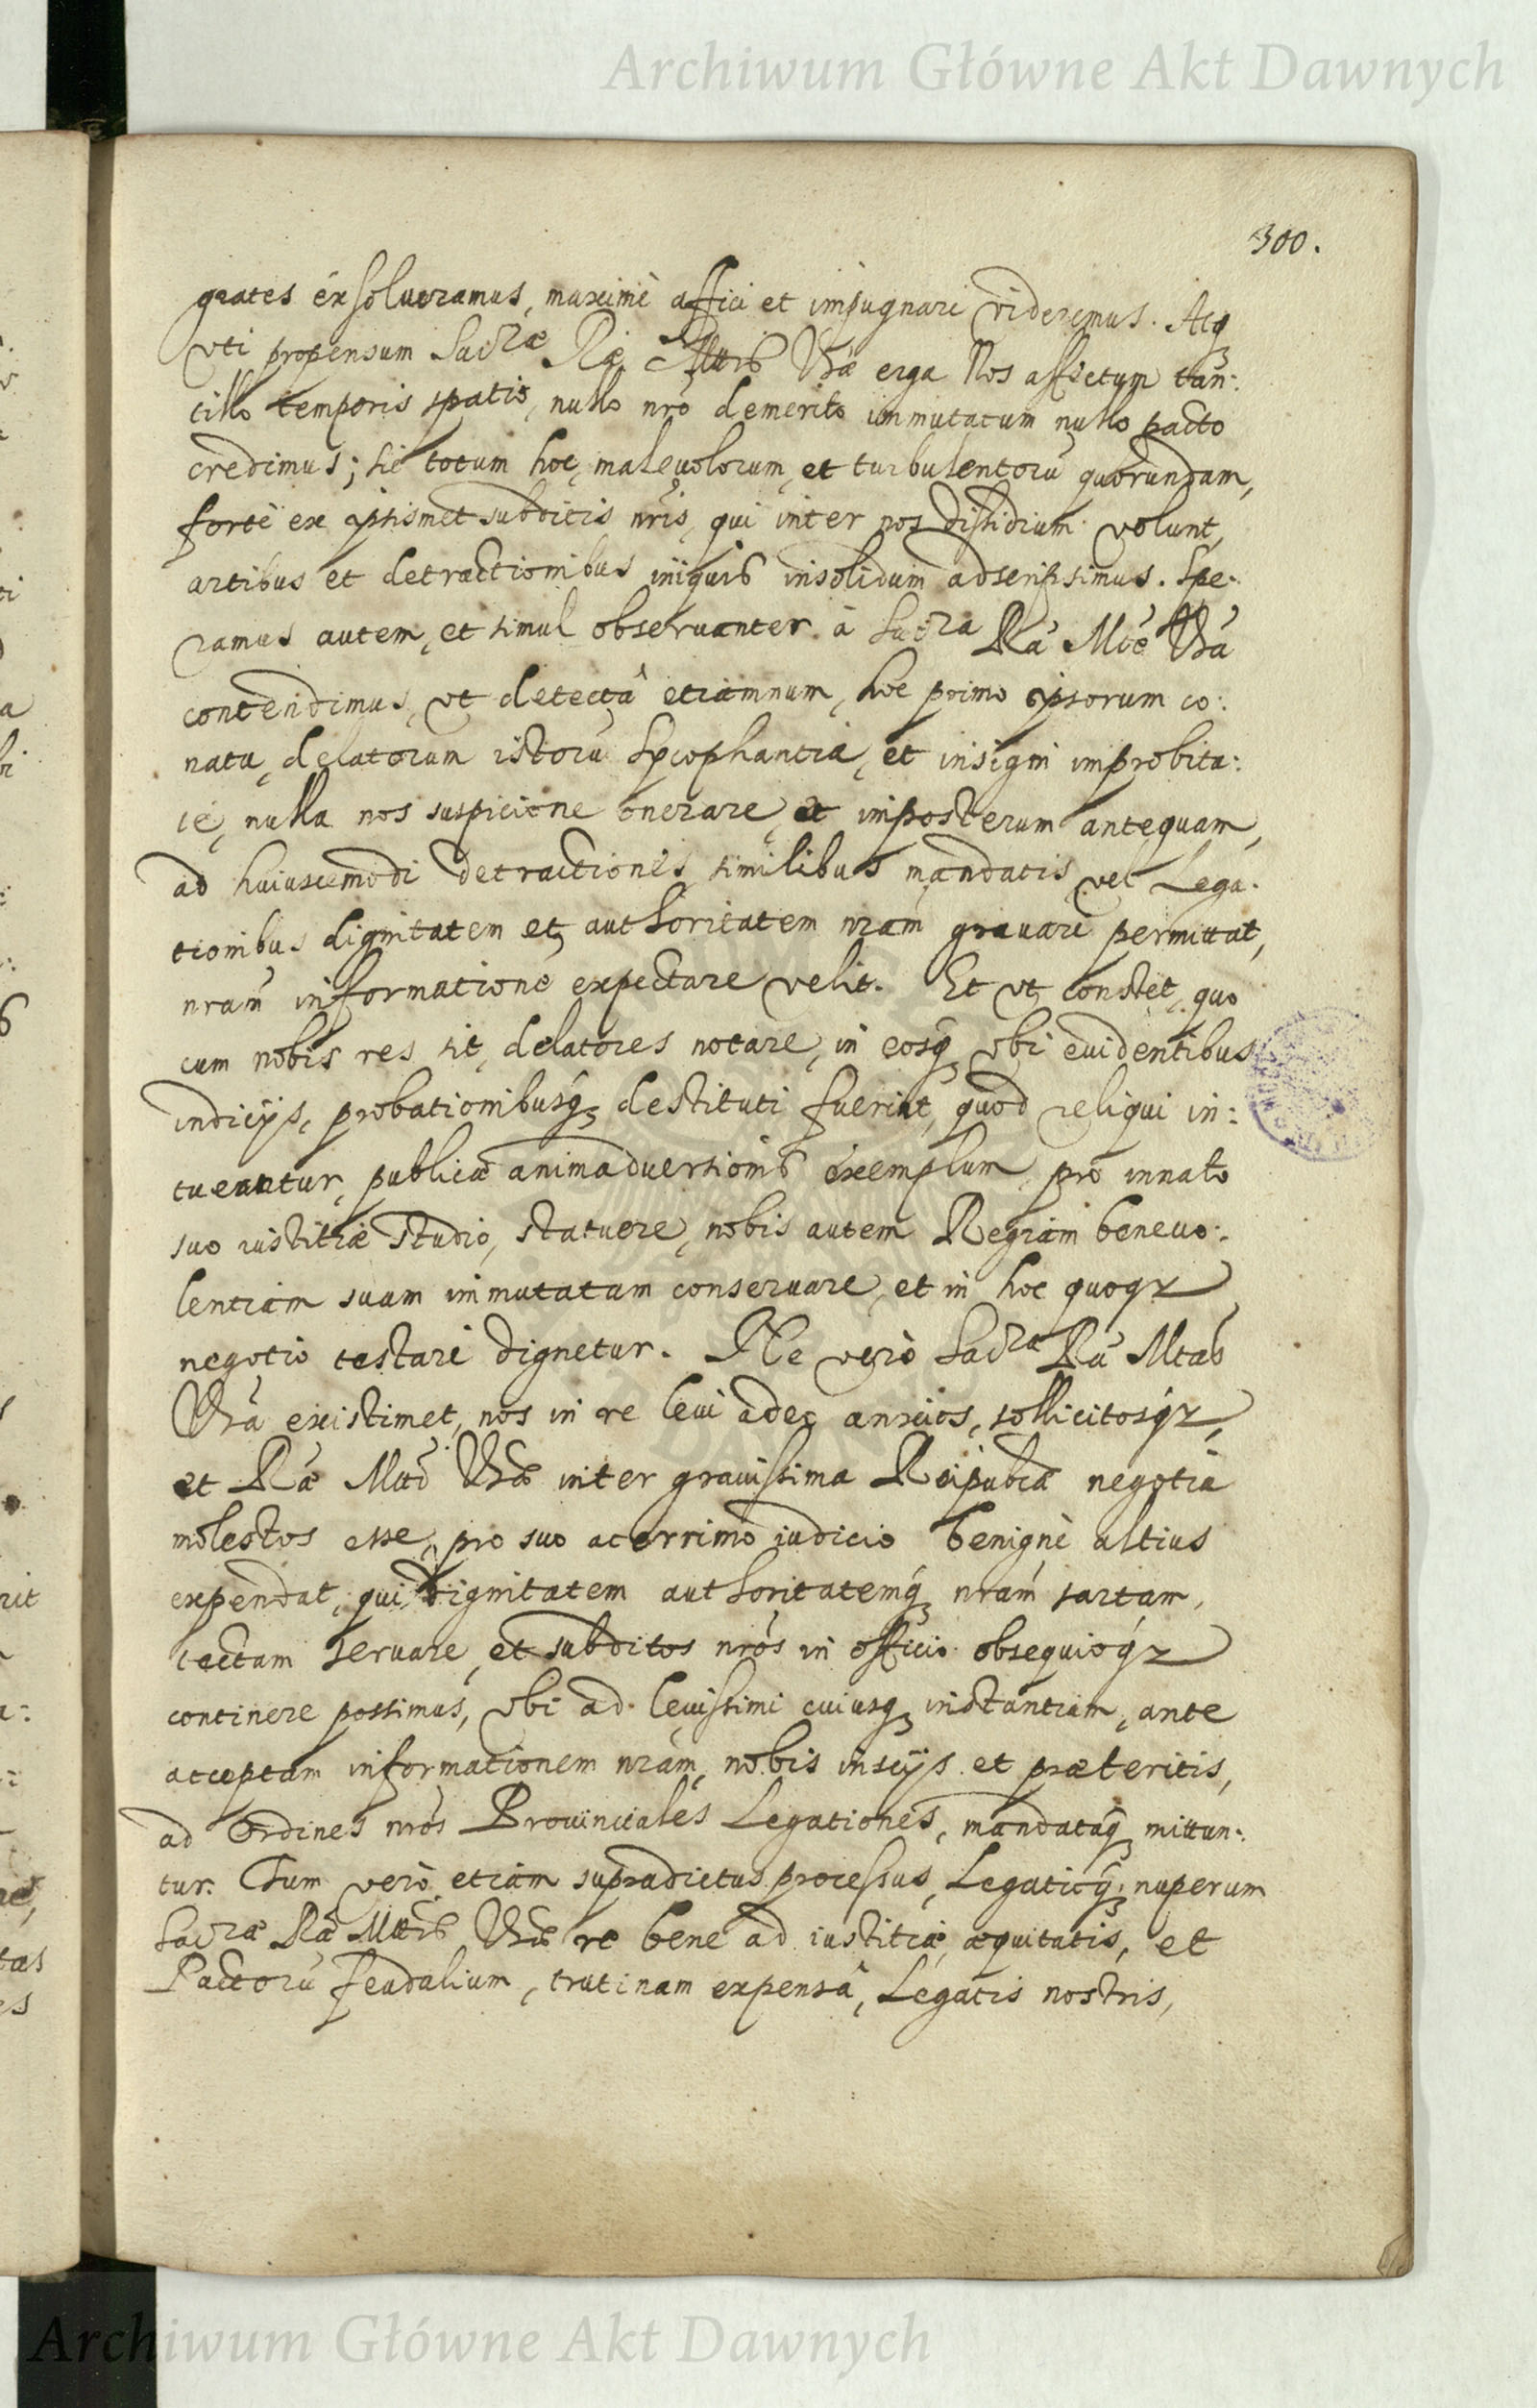 Archiwum Główne Akt Dawnych
300.
grates exsolueramus, maximè affici et impugnari videremus. Atq
vti propensum Sacrae Rae Mttis Vrae erga Nos affectum tan:
tillo temporis spatio, nullo nro demerito immutatum nullo pacto
credimus; sic totum hoc, maleuolorum, et turbulentorũ quorundam,
fortè ex ipsismet subditis nris, qui inter nos dissidium volunt,
artibus et detractionibus iniquis insolidum adscripsimus. Spe:
ramus autem, et simul obseruanter à Sacra Rà Mtè Vrâ
contendimus, vt detectâ etiamnum, hoc primo ipsorum co:
natu, delatorum istorũ Sycophantiâ, et insigni improbita:
te, nulla nos suspicione onerare, et imposterum antequam,
ad huiuscemodi detractiones, similibus mandatis, vel Lega:
tionibus dignitatem et authoritatem nram grauari permittat,
nram informationẽ expectare velit. Et vt constet, quo
cum nobis res sit, delatores notare, in eosq vbi euidentibus
indicijs, probationibusq destituti fuerint, quod reliqui in:
tueantur, publicae animaduersionis exemplum, pro innato
suo iustitiae studio, statuere, nobis autem Regiam beneuo:
lentiam suam immutatam conseruare, et in hoc quoq
negotio testari dignetur. Ne verò Sacra Ra Mtas
Vra existimet, nos in re leui adeo anxios, sollicitosq,
et Rae Mtti Vrae inter grauissima Reipubcae negotia
molestos esse, pro suo acerrimo iudicio benignè altius
expendat, qui dignitatem authoritatemq nram sartam,
tectam seruare, et subditos nros in officio obsequioq
continere possimus, vbi ad leuissimi cuiusq instantiam, ante
acceptam informationem nram, nobis inscijs et praeteritis,
ad Ordines nros Prouinciales Legationes, mandataq mittun:
tur. Tum verò etiam supradictus processus, Legatioq nuperum
Sacrae Rae Mttis Vrae re bene ad iustitiae, aequitatis, et
Pactorũ feudalium, trutinam expensâ, Legatis nostris,
Archiwum Główne Akt Dawnych